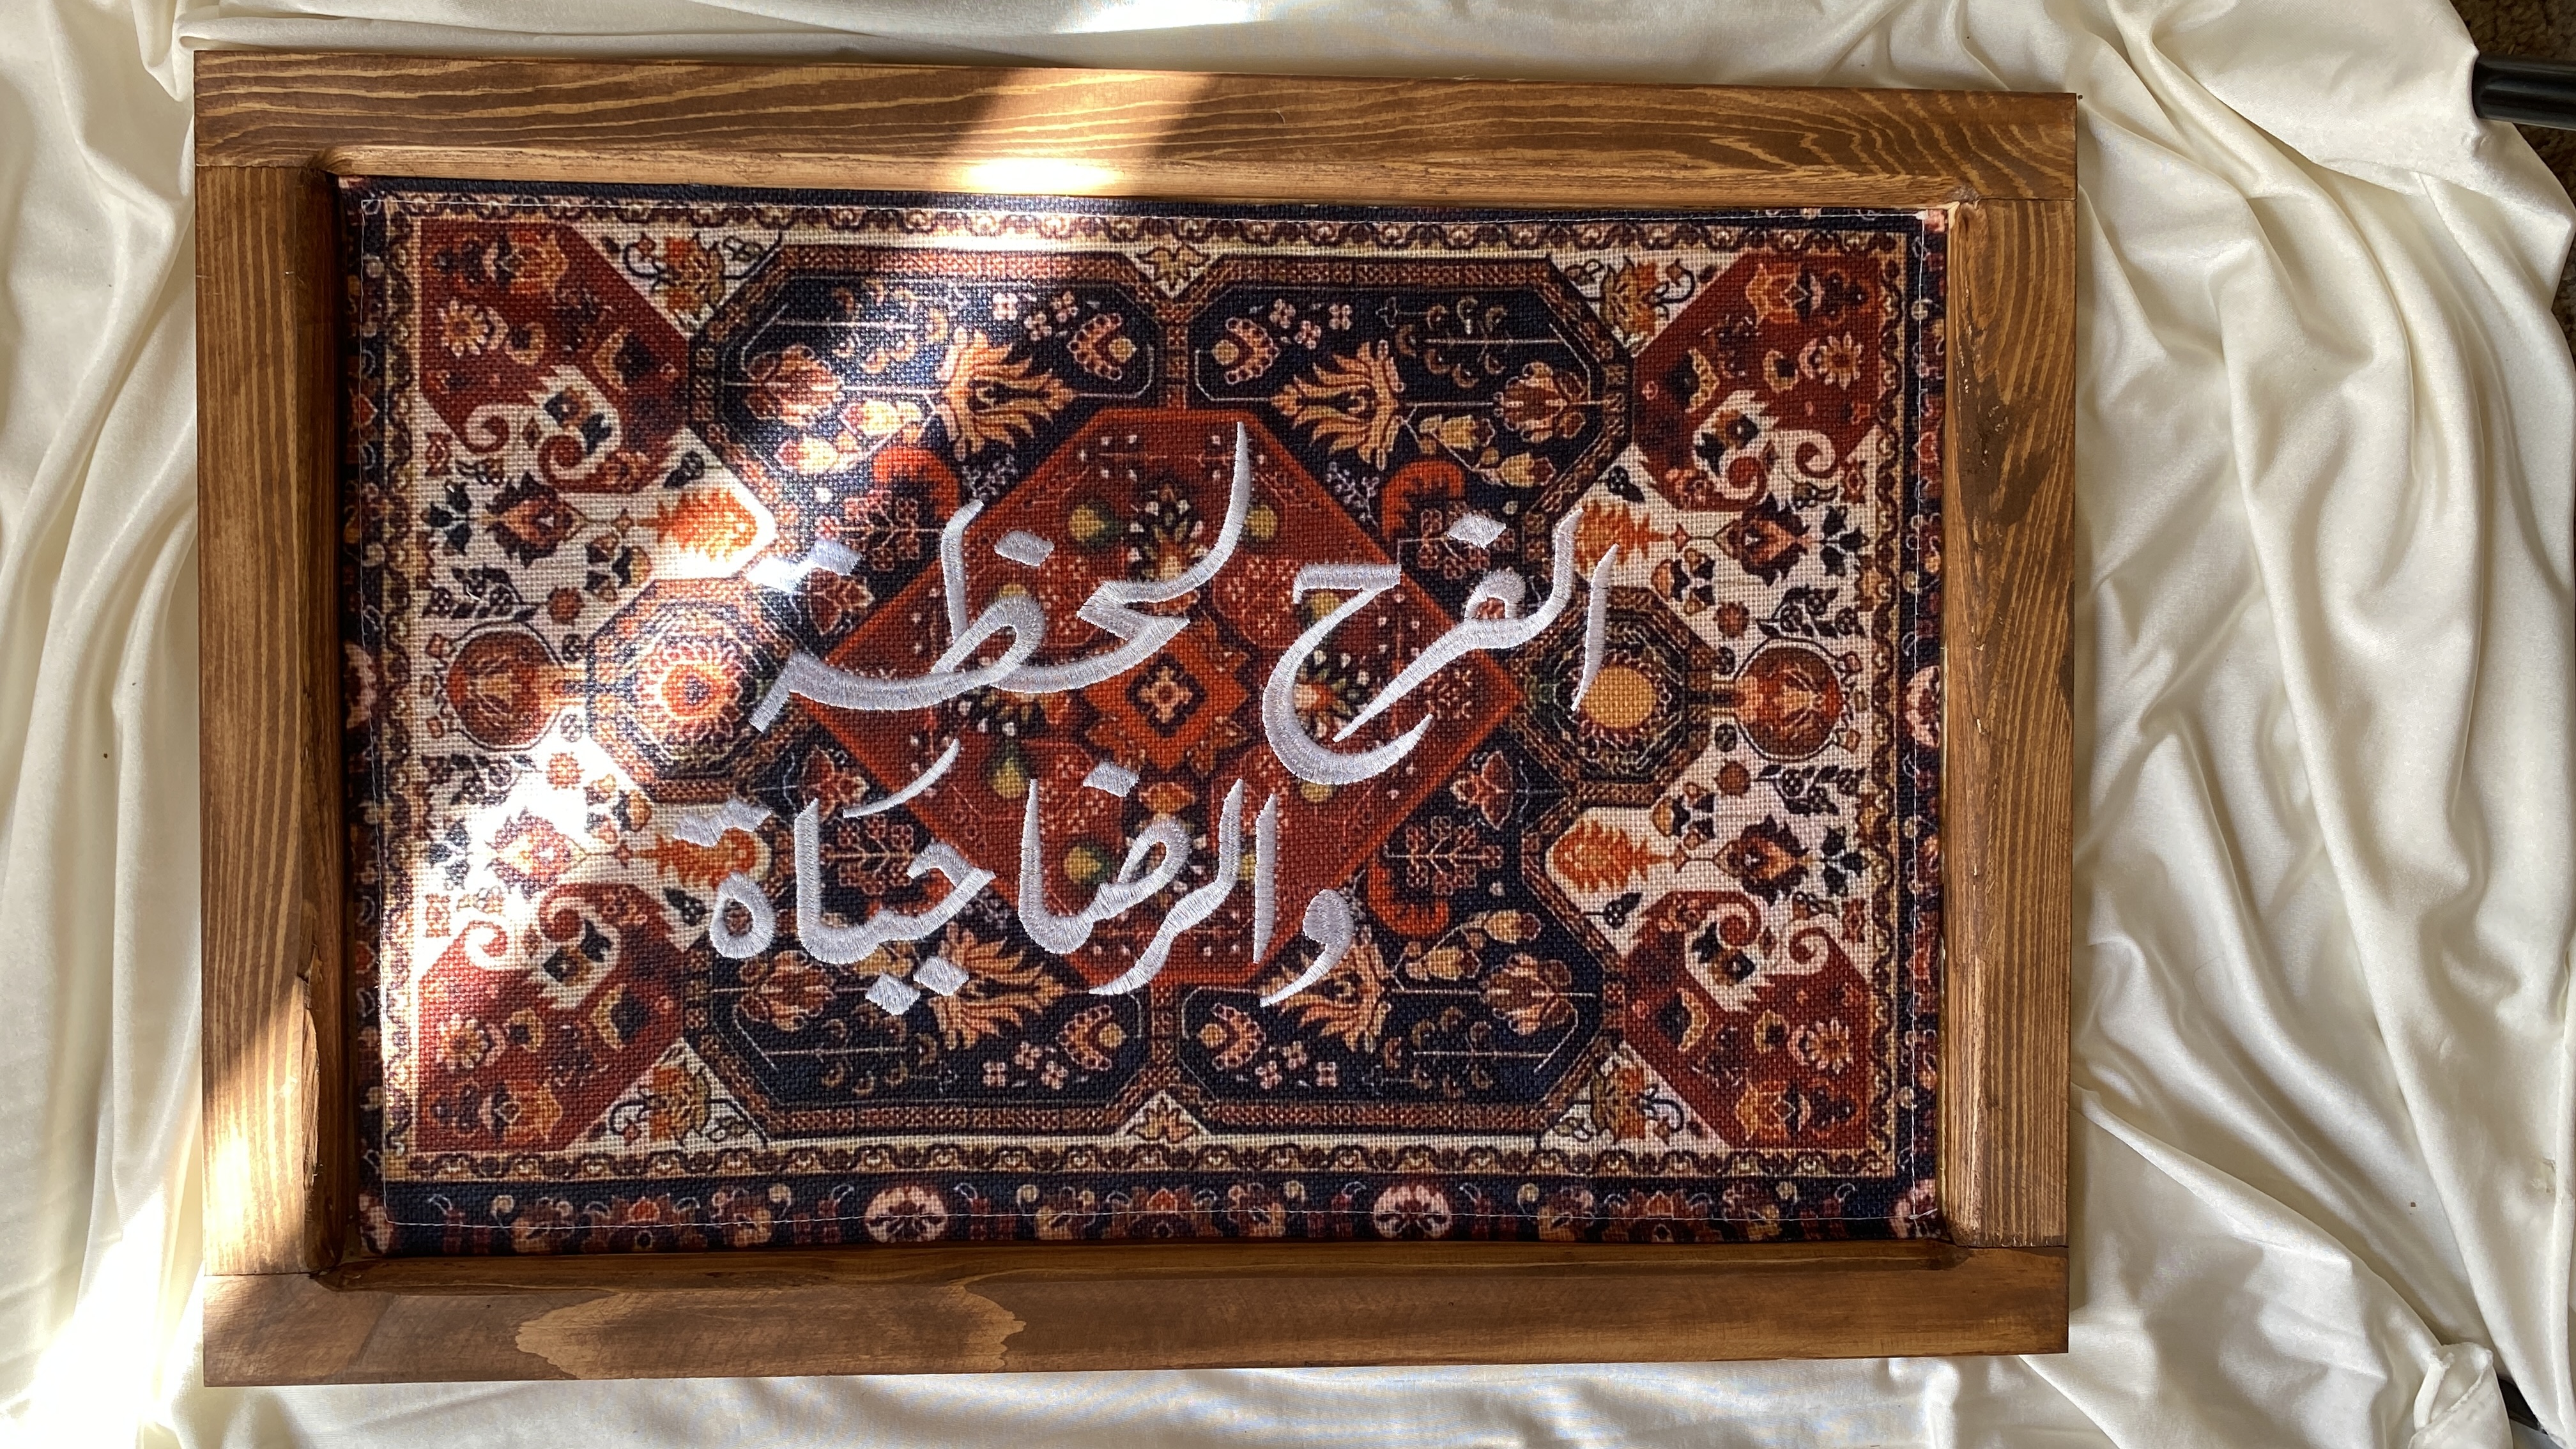 الفرح لحظة
والرضا حياة